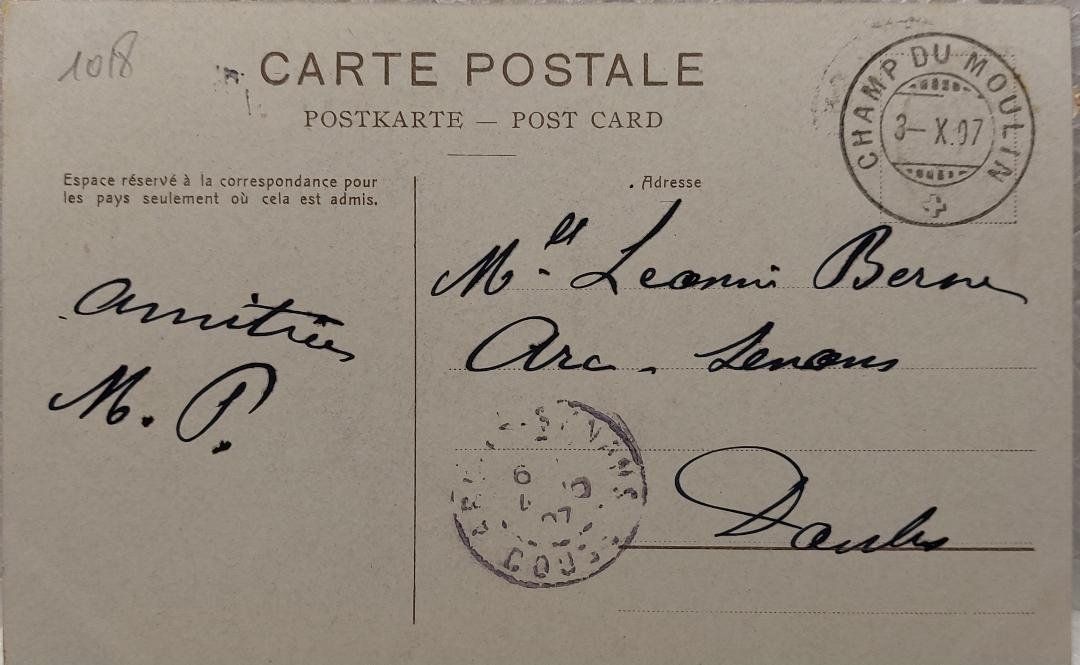 1018
CARTE POSTALE
POSTKARTE — POST CARD
CHAMP DU MOULIN
3–X.07
Espace réservé à la correspondance pour
les pays seulement où cela est admis.
Adresse
Mlle Leonie Berne
Arc-Senans
Doubs
amitiées
M. P.